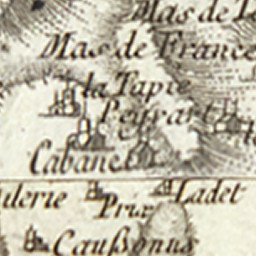 Mas de
Mas de France
la Tapie
Peyrart
Cabanel
Prix Ladet
Caußonus